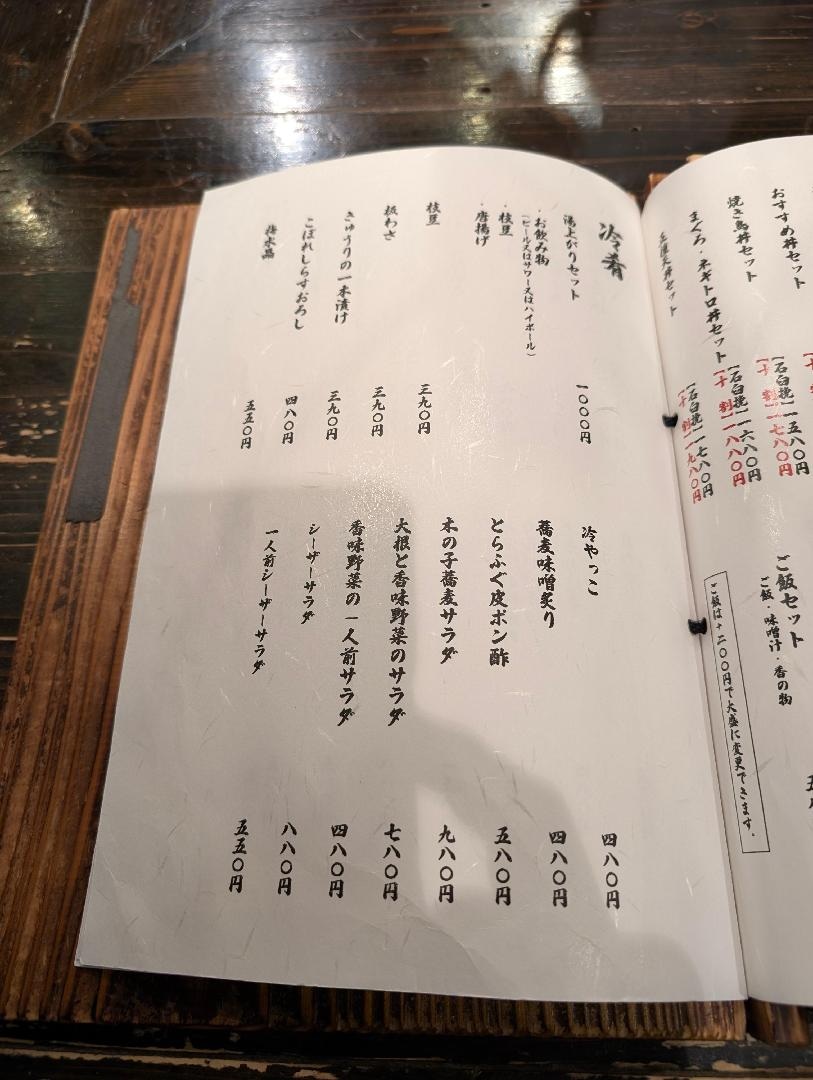 おすすめ丼セット
焼き鳥丼セット
【石臼挽】一五八〇円
【十 割】一七八〇円
まぐろ・ネギトロ丼セット
【石臼挽】一六八〇円
【十 割】一八八〇円
天丼セット
【石臼挽】一七八〇円
【十 割】一九八〇円
ご飯セット
ご飯・味噌汁・香の物
ご飯は+二〇〇円で大盛に変更できます。
冷肴
湯上がりセット 一〇〇〇円
・お飲み物
(ビール又はサワー又はハイボール)
・枝豆
・唐揚げ
枝豆 三九〇円
板わさ 三九〇円
きゅうりの一本漬け 三九〇円
こぼれしらすおろし 四八〇円
梅水晶 五五〇円
冷やっこ 四八〇円
蕎麦味噌炙り 四八〇円
とらふぐ皮ポン酢 五八〇円
木の子蕎麦サラダ 九八〇円
大根と香味野菜のサラダ 七八〇円
香味野菜の一人前サラダ 四八〇円
シーザーサラダ 八八〇円
一人前シーザーサラダ 五五〇円